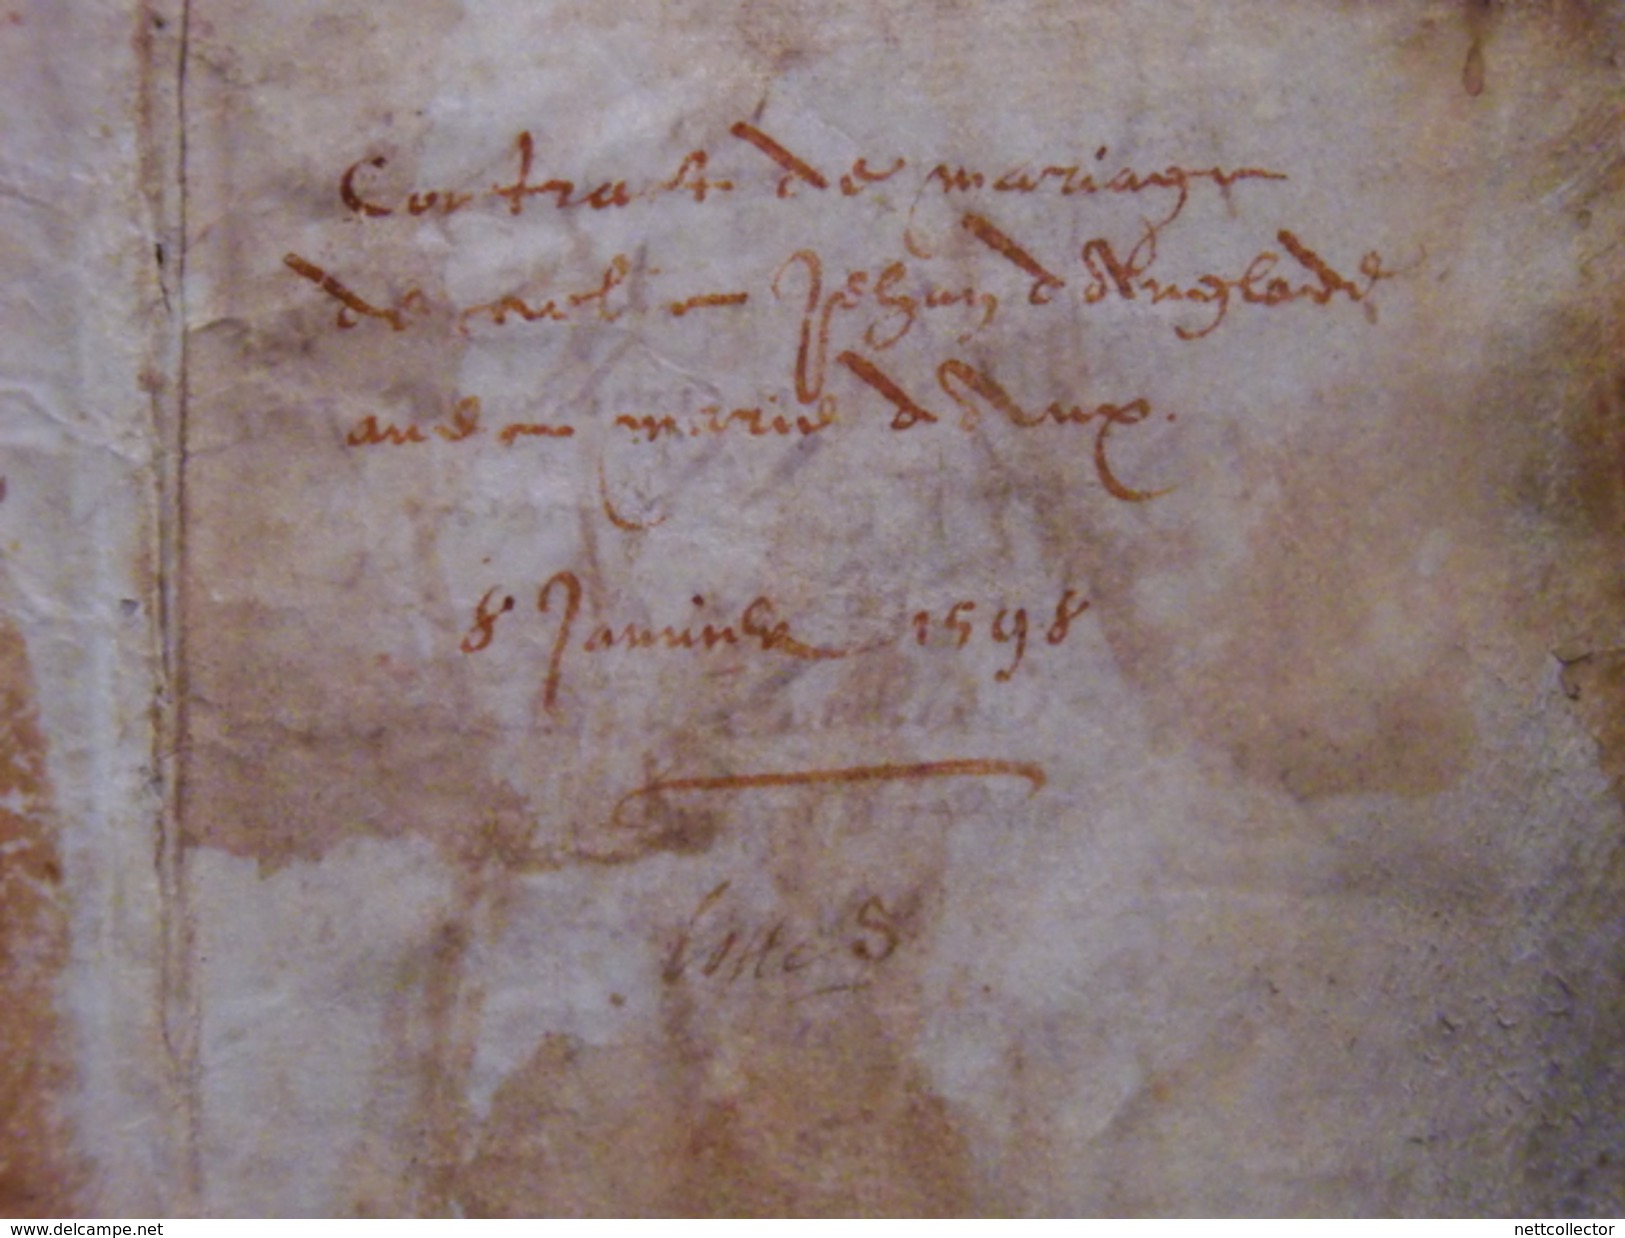 Contract de mariage
de noble Jehan d'Anglade
avec marie d'Aux.
8 Januier 1598
Cotte S
www.delcampe.net
nettcollector